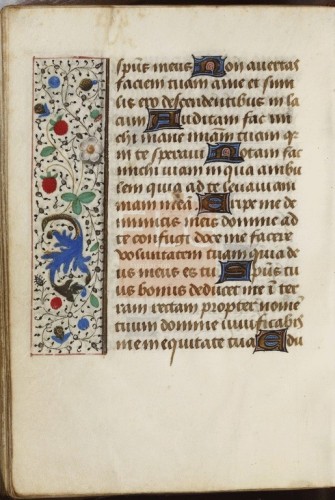 spūs meus Non avertas
faciem tuam a me et simi
lis ero descendentibus in la
cum Auditam fac mi
chi mane miām tuam qr
in te speravi Notam fac
michi viam in qua ambu
lem quia ad te levavi ani
mam meā Eripe me de
inimicis meis domine ad
te confugi doce me facere
voluntatem tuam quia de
us meus es tu Spūs tu
us bonus deducet me ī ter
ram rectam propter nomē
tuum domine vivificabis
me in equitate tua Edu